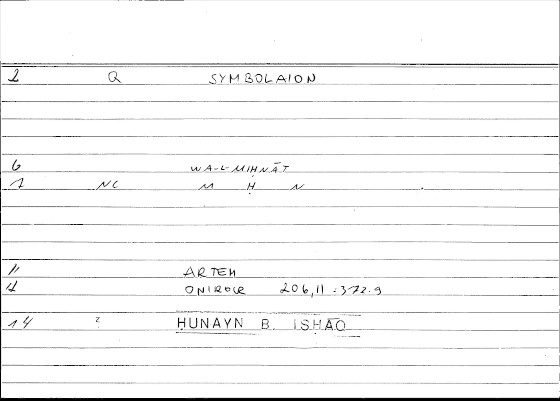 2 Q SYMBOLAION
6 WA-L-MIḤNĀT
1 NC M Ḥ N
11 ARTEM
4 ONIROCR 206,11 = 372.9
14 ? HUNAYN B. ISHAQ